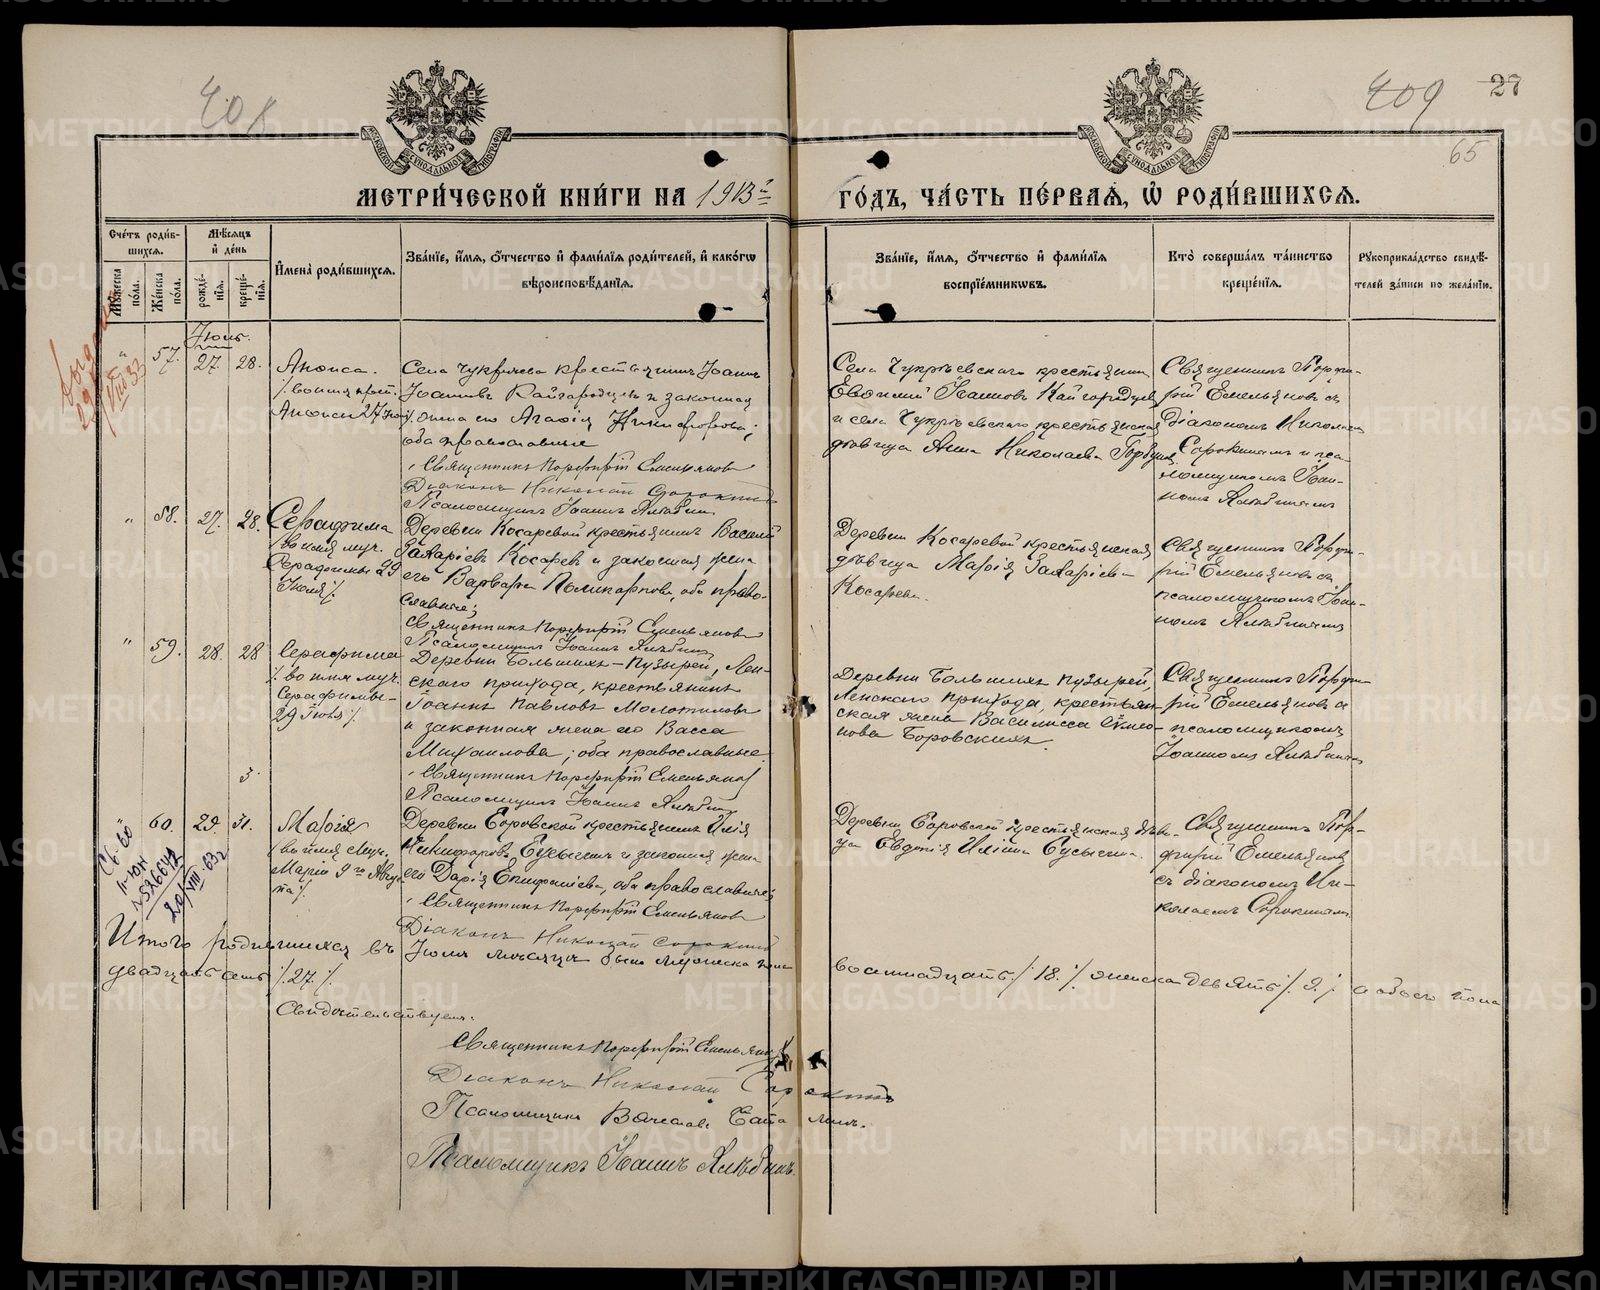 408
409
27
65
МЕТРИ́ЧЕСКОЙ КНИ́ГИ НА 1913 й
ГО́ДЪ, ЧА́СТЬ ПЕ́РВАЯ, Ѽ РОДИ́ВШИХСЯ.
Сче́тъ роди́в-
шихся.
Мѣ́сяцъ
и҆ де́нь
Му́жеска по́ла.
Же́нска по́ла.
рожде́нїѧ.
креще́нїѧ.
И҆мена̀ роди́вшихся.
Зва́нїе, и҆́мя, ѻ҆́тчество и҆ фами́лїя роди́телей, и҆ како́гѡ
вѣроисповѣ́данїя.
Зва́нїе, и҆́мя, ѻ҆́тчество и҆ фами́лїя
воспрїе́мниковъ.
Кто̀ соверша́лъ та́инство
креще́нїя.
Рꙋкоприкла́дство свидѣ́-
телей за́писи по жела́нїю.
Іюль.
" 57. 27. 28. Анѳиса.
Села Чукрѣева крестьянинъ Іоаннъ
Іоанновъ Кайгородцевъ и законная
жена его Агаѳія Никифорова;
оба православные
Священникъ Порфирій Емельяновъ
Діаконъ Николай Сорокинъ
Псаломщикъ Іоаннъ Ялабинъ
Села Чукрѣевскаго крестьянинъ
Евѳимій Іоанновъ Кайгородцевъ
и села Чукрѣевскаго крестьянская
дѣвица Анна Николаева
Священникъ Порфи-
рій Емельяновъ съ
діакономъ Николаемъ
Сорокинымъ и пса-
ломщикомъ Іоан-
номъ Ялабинымъ
" 58. 27. 28. Серафима
/во имя муч.
Серафимы 29
Іюля/.
Деревни Косаревой крестьянинъ Василій
Захаріевъ Косаревъ и законная жена
его Варвара Поликарпова, оба право-
славные;
Священникъ Порфирій Емельяновъ
Псаломщикъ Іоаннъ Ялабинъ
Деревни Косаревой крестьянская
дѣвица Марія Захаріева
Косарева.
Священникъ Порфи-
рій Емельяновъ съ
псаломщикомъ Іоан-
номъ Ялабинымъ
" 59. 28. 28 Серафима
/. во имя муч.
Серафимы
29 Іюля/.
Деревни Большихъ-Пузырей, Лен-
скаго прихода, крестьянинъ
Іоаннъ Павловъ Молотиловъ
и законная жена его Васса
Михаилова; оба православные
Священникъ Порфирій Емельяновъ
Псаломщикъ Іоаннъ Ялабинъ
Деревни Большихъ Пузырей,
Ленскаго прихода, крестьян-
ская жена Василисса
Боровскихъ.
Священникъ Порфи-
рій Емельяновъ и
псаломщикомъ
Іоанномъ Ялабинымъ
60. 29. 31. Марія
/во имя муч.
Маріи 9го Авгу-
ста/.
Деревни Боровской крестьянинъ Илія
Никифоровъ Бусыгинъ и законная жена
его Дарія Епифаніева, оба православные;
Священникъ Порфирій Емельяновъ
Діаконъ Николай Сорокинъ
Деревни Боровской крестьянская дѣви-
ца Евдокія Иліина Бусыгина.
Священникъ Пор-
фирій Емельяновъ
съ діакономъ Ни-
колаемъ Сорокинымъ
Итого родившихся въ Іюлѣ мѣсяцѣ было мужеска пола восемнадцать /.18./ женска девять /.9./ а обоего пола
двадцать семь /.27./.
Свидѣтельствуемъ:
Священникъ Порфирій Емельяновъ
Діаконъ Николай Сорокинъ
Псаломщикъ Іоаннъ Ялабинъ.
METRIKI.GASO-URAL.RU